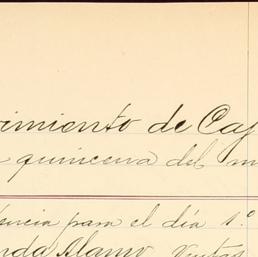 imiento de Caj
quincena del m
encia para el día 1.º
nda Alamo Ventas